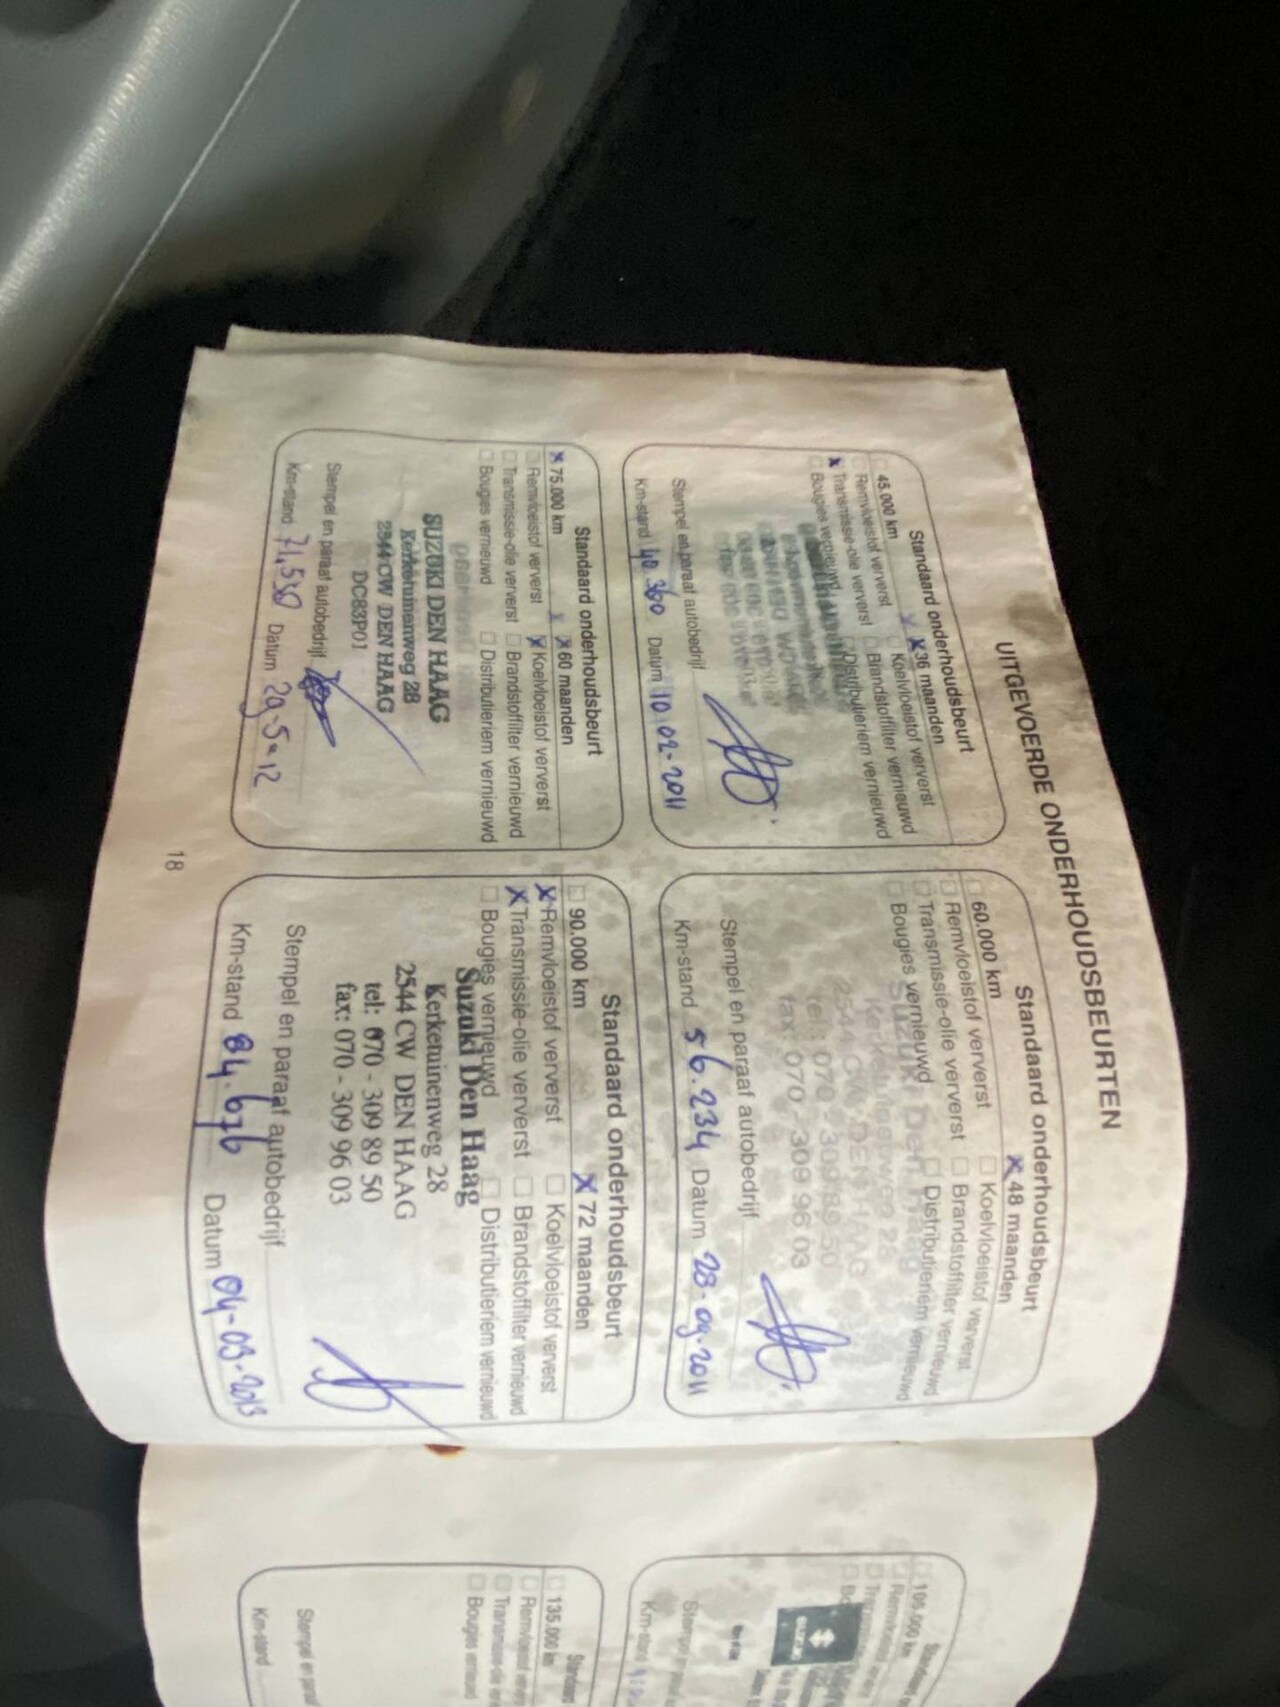 UITGEVOERDE ONDERHOUDSBEURTEN
Standaard onderhoudsbeurt
45.000 km X 36 maanden
Remvloeistof ververst Koelvloeistof ververst
X Transmissie-olie ververst Brandstoffilter vernieuwd
Bougies vernieuwd Distributieriem vernieuwd
Stempel en paraaf autobedrijf
Km-stand 40.360 Datum 10.02-2011
Standaard onderhoudsbeurt
60.000 km X 48 maanden
Remvloeistof ververst Koelvloeistof ververst
Transmissie-olie ververst Brandstoffilter vernieuwd
Bougies vernieuwd Distributieriem vernieuwd
Suzuki Den Haag
Kerketuinenweg 28
2544 CW DEN HAAG
tel: 070 - 309 89 50
fax: 070 - 309 96 03
Stempel en paraaf autobedrijf
Km-stand 56.234 Datum 28-09-2011
Standaard onderhoudsbeurt
X 75.000 km X 60 maanden
Remvloeistof ververst X Koelvloeistof ververst
Transmissie-olie ververst Brandstoffilter vernieuwd
Bougies vernieuwd Distributieriem vernieuwd
SUZUKI DEN HAAG
Kerketuinenweg 28
2544 CW DEN HAAG
DC83P01
Stempel en paraaf autobedrijf
Km-stand 71.530 Datum 29-5-12
Standaard onderhoudsbeurt
90.000 km X 72 maanden
X Remvloeistof ververst Koelvloeistof ververst
X Transmissie-olie ververst Brandstoffilter vernieuwd
Bougies vernieuwd Distributieriem vernieuwd
Suzuki Den Haag
Kerketuinenweg 28
2544 CW DEN HAAG
tel: 070 - 309 89 50
fax: 070 - 309 96 03
Stempel en paraaf autobedrijf
Km-stand 84.676 Datum 04-03-2013
18
105.000 km
Remvloeistof
Stempel
Km-stand
135.000 km
Remvloeistof
Transmissie-olie
Bougies vernieuwd
Stempel en paraaf
Km-stand